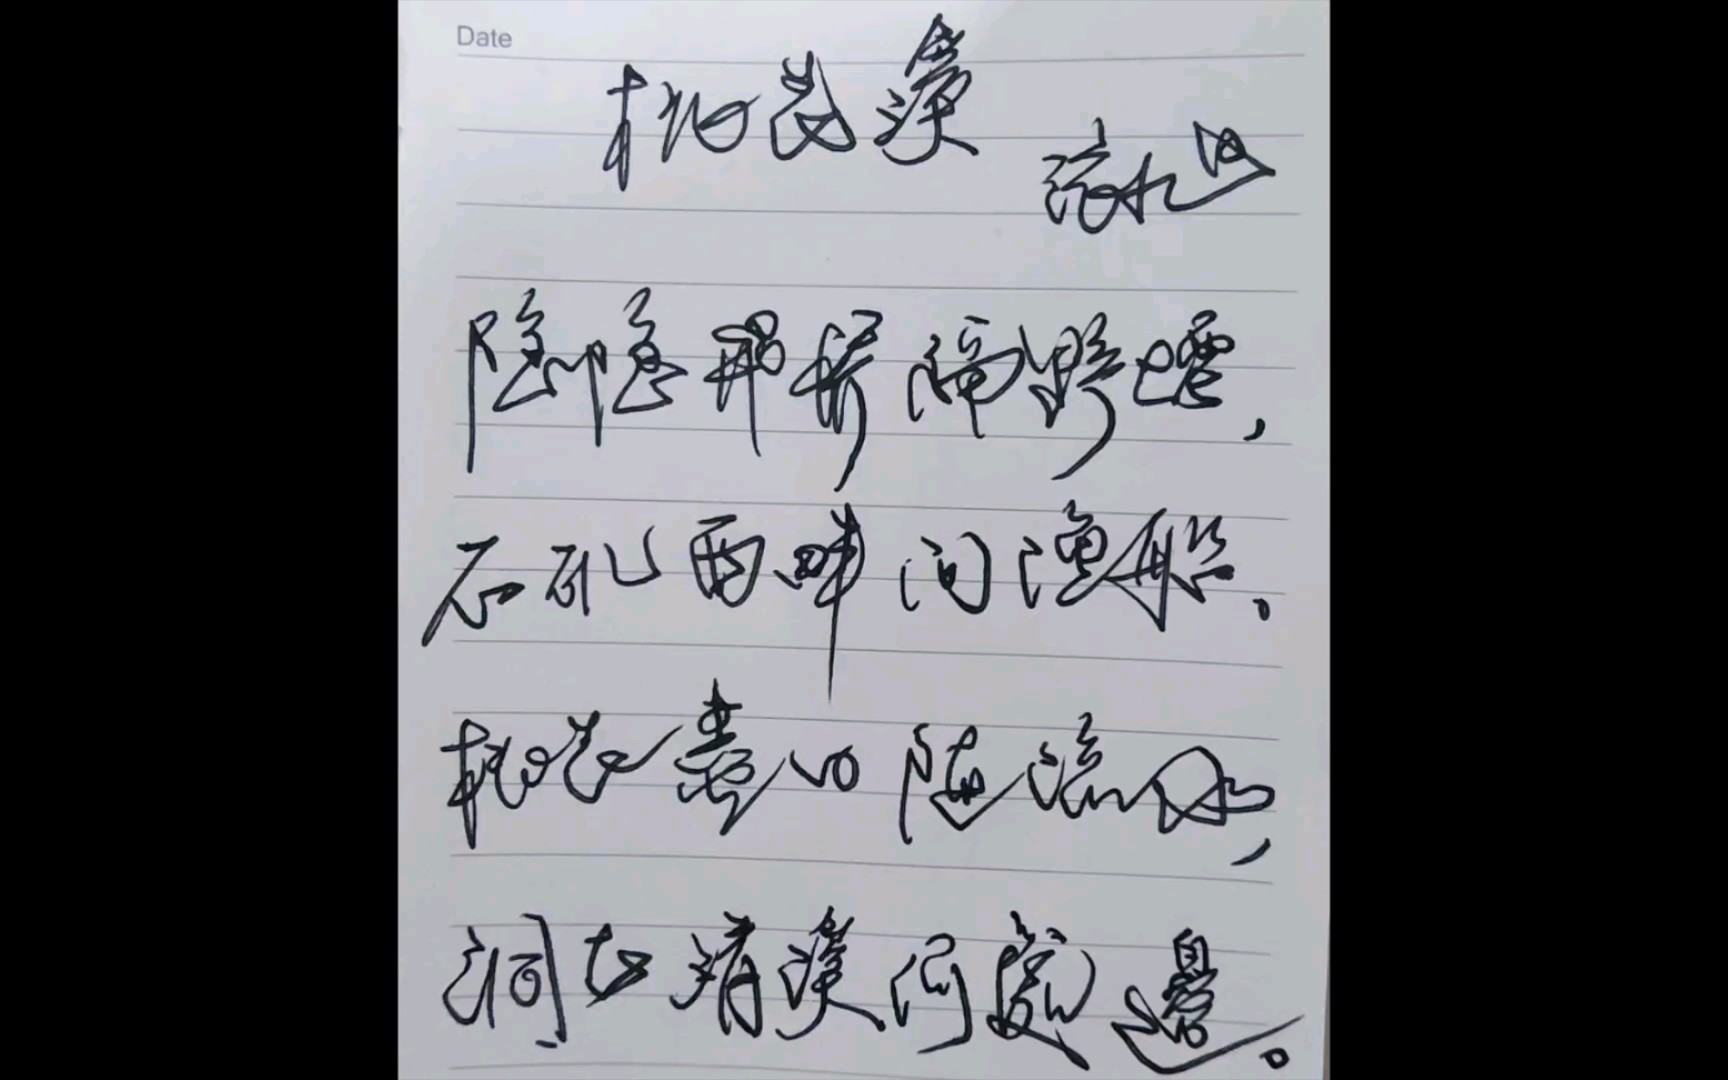 Date
桃花溪
隐隐飞桥隔野烟，
石矶西畔问渔船。
桃花尽日随流水，
洞在清溪何处边。